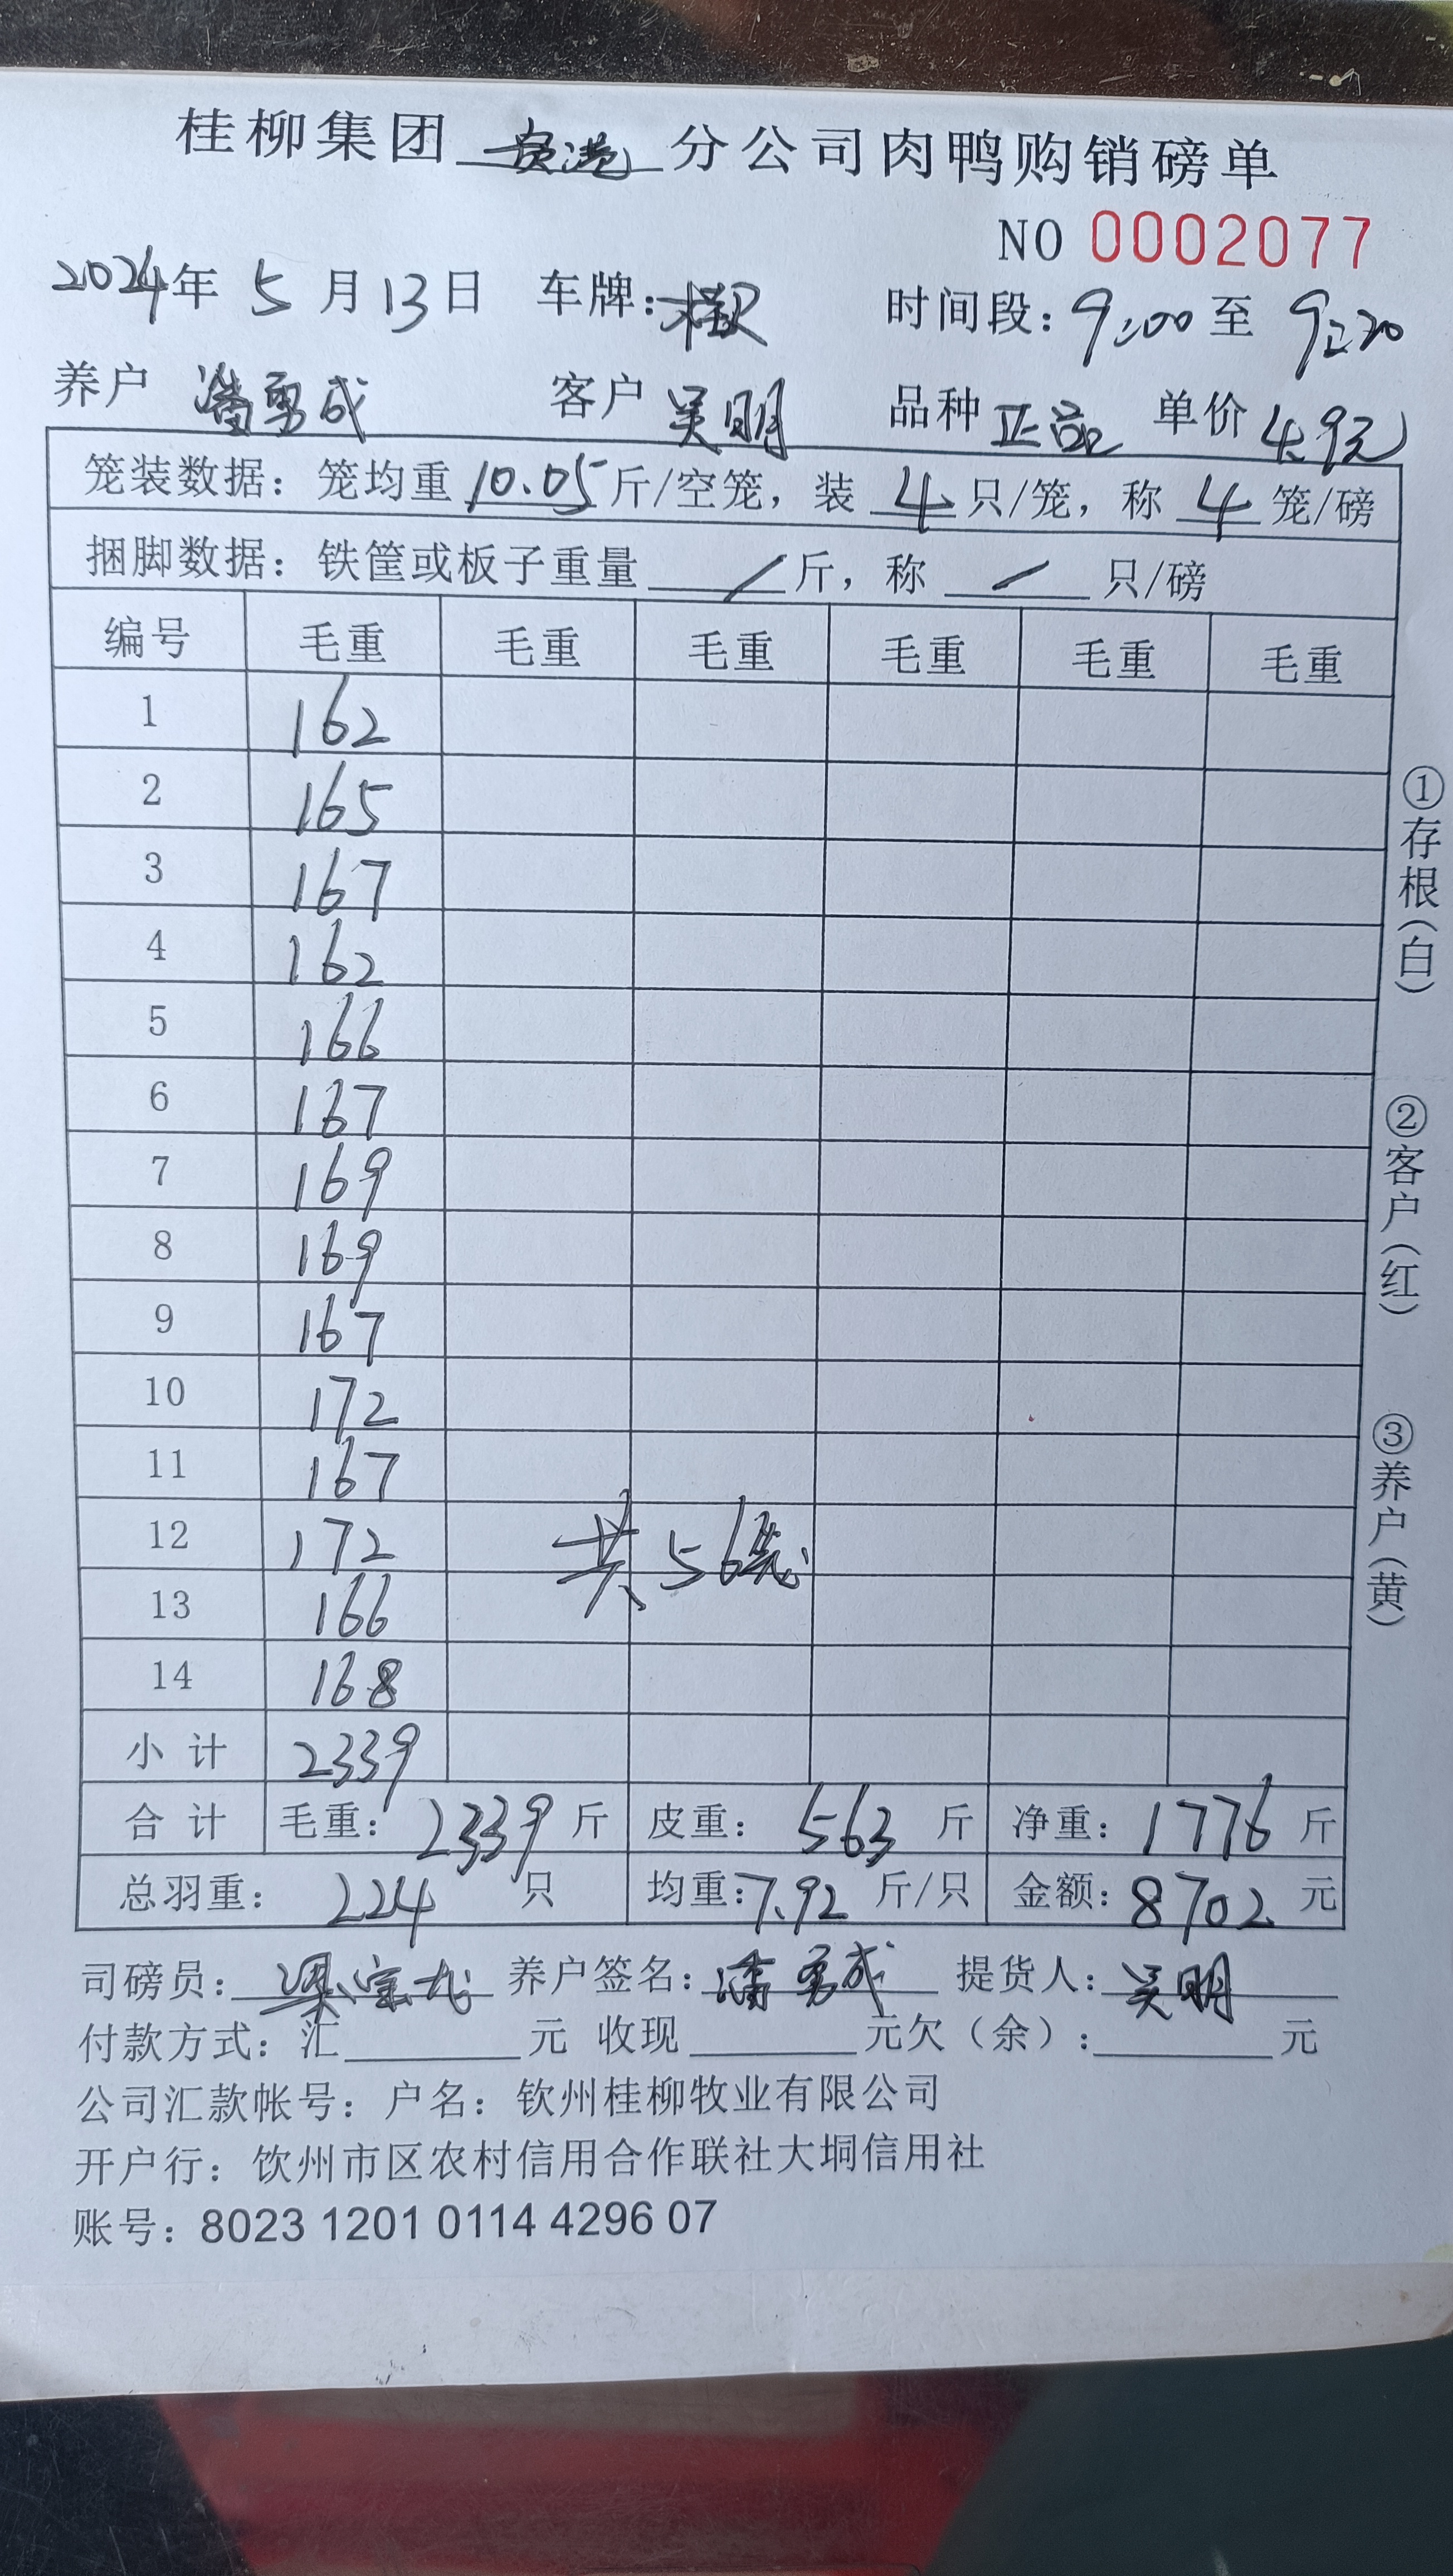 桂柳集团 贵港 分公司肉鸭购销磅单
NO 0002077
2024年 5 月 13 日 车牌: 时间段: 9:00 至 9:20
养户 潘勇成 客户 吴明 品种 正品 单价 4.9元
笼装数据: 笼均重 10.05 斤/空笼, 装 4 只/笼, 称 4 笼/磅
捆脚数据: 铁筐或板子重量 / 斤, 称 / 只/磅
编号 毛重 毛重 毛重 毛重 毛重 毛重
1 162
2 165
3 167
4 162
5 166
6 167
7 169
8 169
9 167
10 172
11 167
12 172
共56笼
13 166
14 168
小 计 2339
合 计 毛重: 2339 斤 皮重: 563 斤 净重: 1776 斤
总羽重: 224 只 均重: 7.92 斤/只 金额: 8702 元
司磅员: 养户签名: 潘勇成 提货人: 吴明
付款方式: 汇 元 收现 元欠(余): 元
公司汇款帐号: 户名: 钦州桂柳牧业有限公司
开户行: 饮州市区农村信用合作联社大垌信用社
账号: 8023 1201 0114 4296 07
①存根(白)
②客户(红)
③养户(黄)